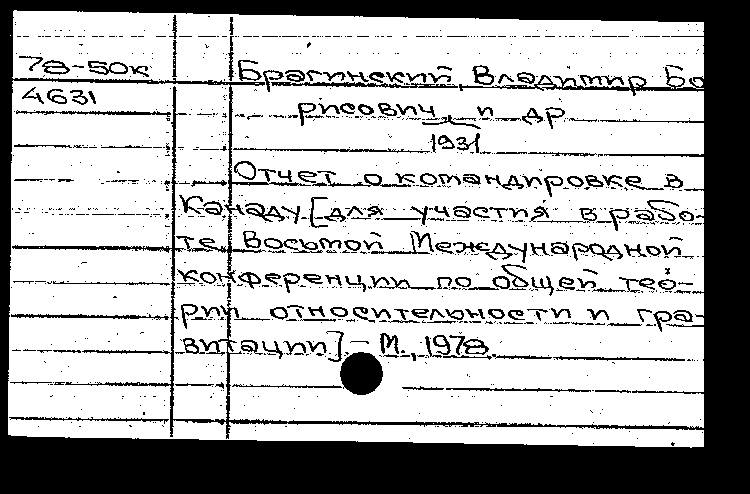 78-50к
4631
Брагинский, Владимир Бо
рисович, и др
1931
Отчет о командировке в
Канаду [для участия в рабо-
те Восьмой Международной
конференции по общей тео-
рии относительности и гра-
витации]. – М., 1978.